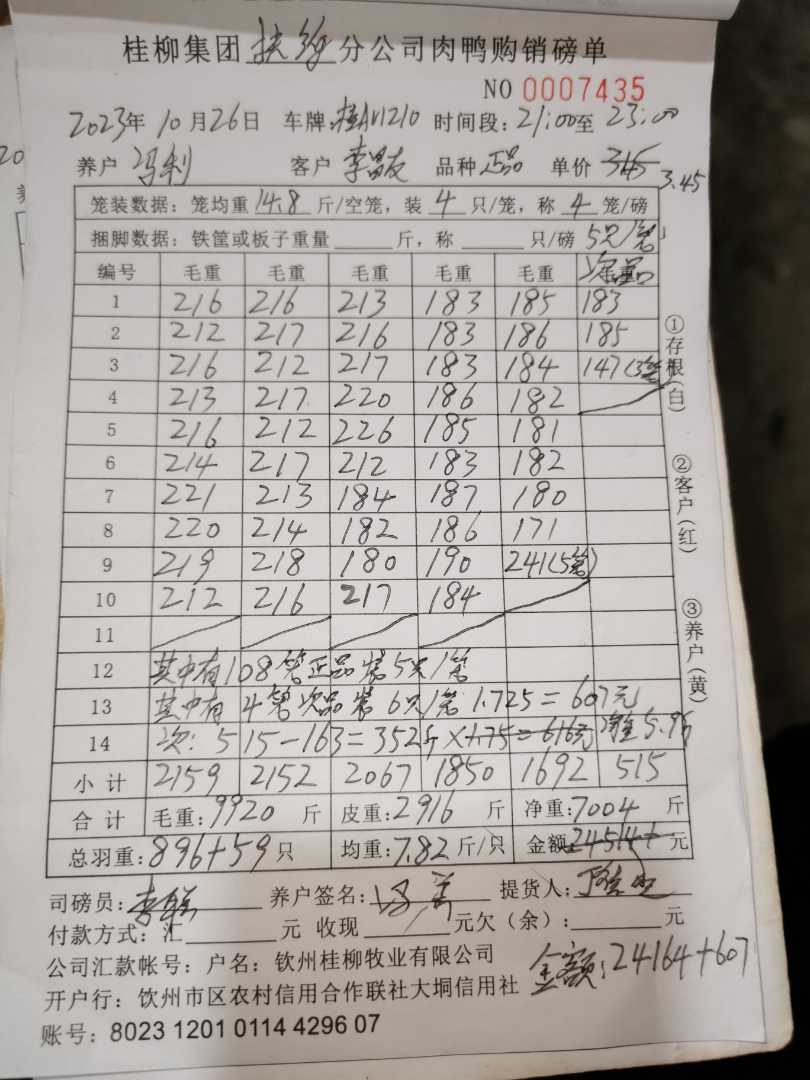 桂柳集团扶绥分公司肉鸭购销磅单
NO 0007435
2023年10月26日 车牌:桂AV1210 时间段:21:00至23:00
养户 冯利 客户 李昌友 品种 正品 单价 345 3.45
笼装数据:笼均重14.8斤/空笼,装4只/笼,称4笼/磅
捆脚数据:铁筐或板子重量 斤,称 只/磅 5只/笼
编号 毛重 毛重 毛重 毛重 毛重 次品
1 216 216 213 183 185 183
2 212 217 216 183 186 185
3 216 212 217 183 184 147(3笼)
4 213 217 220 186 182
5 216 212 226 185 181
6 214 217 212 183 182
7 221 213 184 187 180
8 220 214 182 186 171
9 219 218 180 190 241(5笼)
10 212 216 217 184
11
12 其中有108笼正品装5只/笼
13 其中有4笼次品装6只/笼 1.725=607元
14 次:515-163=352斤×1.75=616元 5.96
小计 2159 2152 2067 1850 1692 515
合计 毛重:9920斤 皮重:2916斤 净重:7004斤
总羽重:896+59只 均重:7.82斤/只 金额:24514+元
司磅员: 养户签名: 提货人:
付款方式:汇 元 收现 元欠(余): 元
公司汇款帐号:户名:钦州桂柳牧业有限公司
金额:24164+607
开户行:钦州市区农村信用合作联社大垌信用社
账号:8023 1201 0114 4296 07
①存根(白)
②客户(红)
③养户(黄)